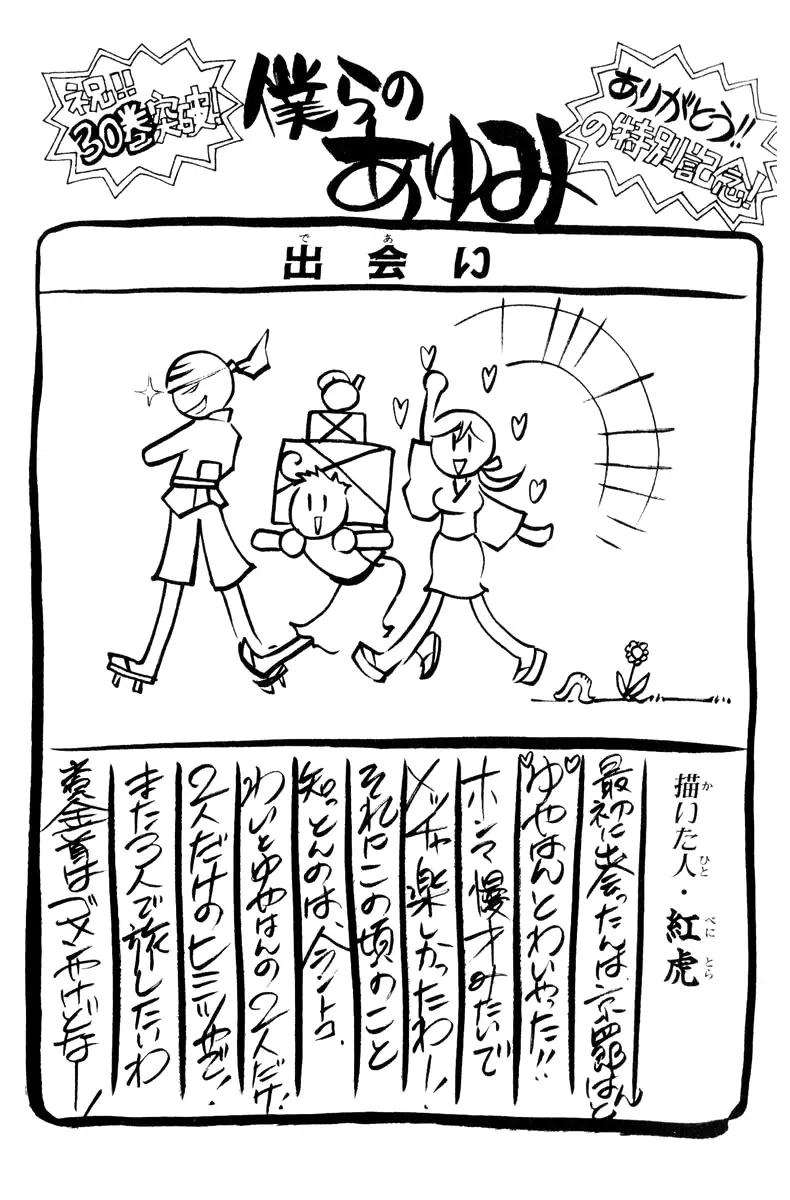 祝!!
30巻突破!
僕らの
あゆみ
ありがとう!!
の特別記念!
出会い
描いた人・紅虎
最初に出会ったんは、京四郎はんと
ゆやはんとわいやった!!
ホンマ慢才みたいで
メッチャ楽しかったわー!
それにこの頃のこと
知っとんのは、今ントコ、
わいとゆやはんの2人だけ!
2人だけのヒミツやで!
また3人で旅したいわ
賞金首はゴメンやけどなー!